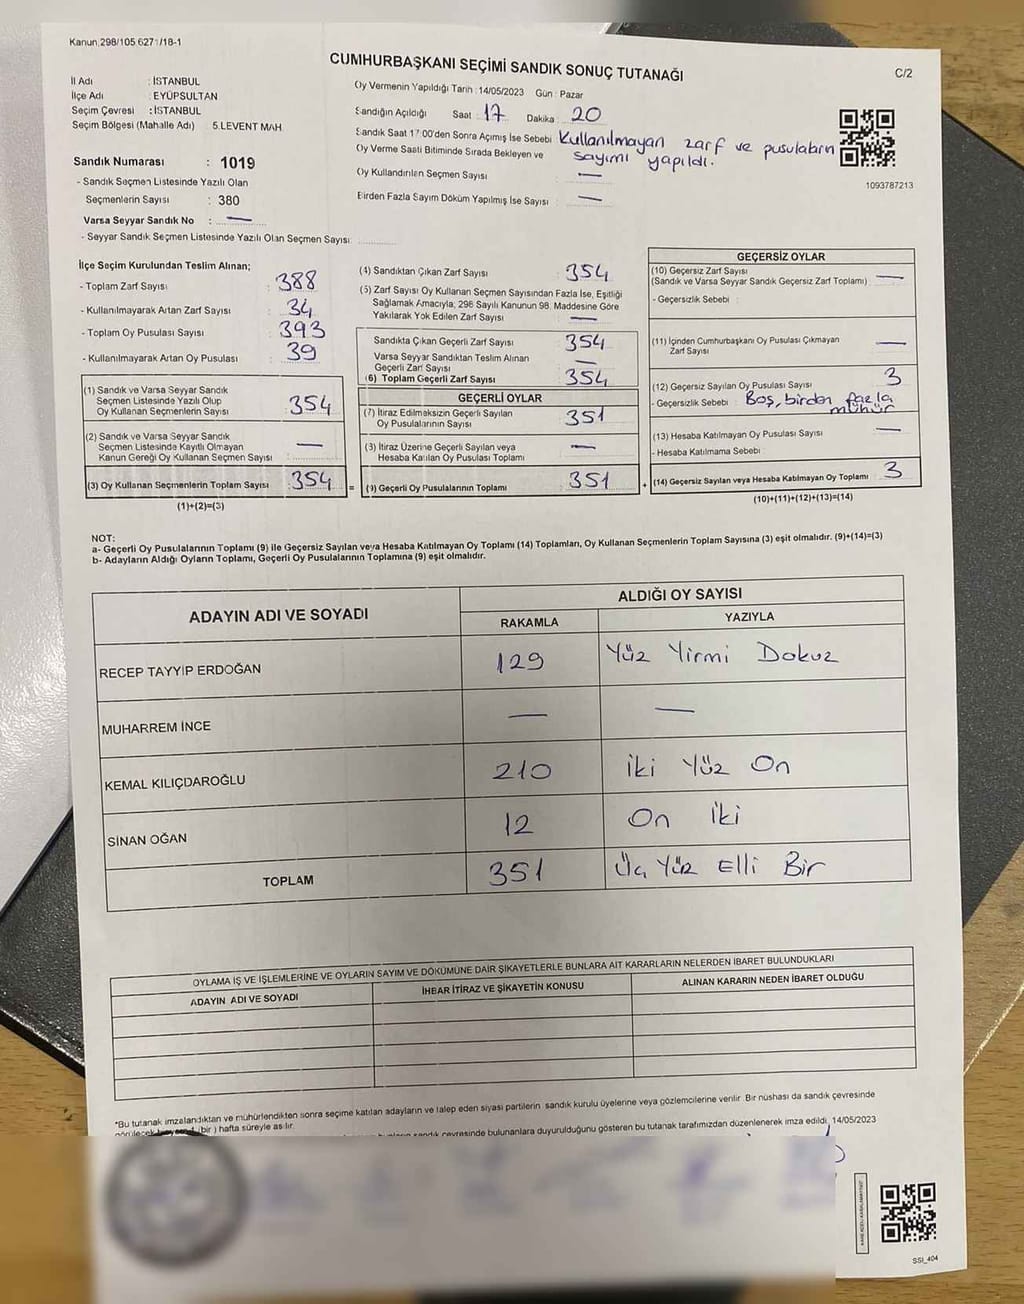 Kanun 298/105 627 /18-1
CUMHURBAŞKANI SEÇİMİ SANDIK SONUÇ TUTANAĞI
C/2
İl Adı : İSTANBUL
İlçe Adı : EYÜPSULTAN
Seçim Çevresi : İSTANBUL
Seçim Bölgesi (Mahalle Adı) 5.LEVENT MAH
Sandık Numarası : 1019
- Sandık Seçmen Listesinde Yazılı Olan
Seçmenlerin Sayısı : 380
Varsa Seyyar Sandık No : —
- Seyyar Sandık Seçmen Listesinde Yazılı Olan Seçmen Sayısı:
Oy Vermenin Yapıldığı Tarih : 14/05/2023 Gün : Pazar
Sandığın Açıldığı Saat 17 Dakika 20
Sandık Saat 17:00'den Sonra Açımış İse Sebebi Kullanılmayan zarf ve pusuların
Oy Verme Saati Bitiminde Sırada Bekleyen ve sayımı yapıldı.
Oy Kullandırılan Seçmen Sayısı —
Birden Fazla Sayım Döküm Yapılmış İse Sayısı : —
1093787213
İlçe Seçim Kurulundan Teslim Alınan;
- Toplam Zarf Sayısı : 388
- Kullanılmayarak Artan Zarf Sayısı : 34
- Toplam Oy Pusulası Sayısı : 393
- Kullanılmayarak Artan Oy Pusulası : 39
(1) Sandık ve Varsa Seyyar Sandık
Seçmen Listesinde Yazılı Olup
Oy Kullanan Seçmenlerin Sayısı : 354
(2) Sandık ve Varsa Seyyar Sandık
Seçmen Listesinde Kayıtlı Olmayan
Kanun Gereği Oy Kullanan Seçmen Sayısı —
(3) Oy Kullanan Seçmenlerin Toplam Sayısı 354 =
(1)+(2)=(3)
(4) Sandıktan Çıkan Zarf Sayısı : 354
(5) Zarf Sayısı Oy Kullanan Seçmen Sayısından Fazla İse, Eşitliği
Sağlamak Amacıyla, 298 Sayılı Kanunun 98. Maddesine Göre
Yakılarak Yok Edilen Zarf Sayısı : —
Sandıkta Çıkan Geçerli Zarf Sayısı : 354
Varsa Seyyar Sandıktan Teslim Alınan
Geçerli Zarf Sayısı : —
(6) Toplam Geçerli Zarf Sayısı : 354
GEÇERLİ OYLAR
(7) İtiraz Edilmeksizin Geçerli Sayılan
Oy Pusulalarının Sayısı : 351
(3) İtiraz Üzerine Geçerli Sayılan veya
Hesaba Katılan Oy Pusulası Toplamı : —
(9) Geçerli Oy Pusulalarının Toplamı : 351 +
GEÇERSİZ OYLAR
(10) Geçersiz Zarf Sayısı
(Sandık ve Varsa Seyyar Sandık Geçersiz Zarf Toplamı) —
- Geçersizlik Sebebi :
(11) İçinden Cumhurbaşkanı Oy Pusulası Çıkmayan
Zarf Sayısı : —
(12) Geçersiz Sayılan Oy Pusulası Sayısı : 3
- Geçersizlik Sebebi : Boş, birden fazla
mühür
(13) Hesaba Katılmayan Oy Pusulası Sayısı : —
- Hesaba Katılmama Sebebi :
(14) Geçersiz Sayılan veya Hesaba Katılmayan Oy Toplamı 3
(10)+(11)+(12)+(13)=(14)
NOT:
a- Geçerli Oy Pusulalarının Toplamı (9) ile Geçersiz Sayılan veya Hesaba Katılmayan Oy Toplamı (14) Toplamları, Oy Kullanan Seçmenlerin Toplam Sayısına (3) eşit olmalıdır. (9)+(14)=(3)
b- Adayların Aldığı Oyların Toplamı, Geçerli Oy Pusulalarının Toplamına (9) eşit olmalıdır.
ADAYIN ADI VE SOYADI ALDIĞI OY SAYISI
RAKAMLA YAZIYLA
RECEP TAYYİP ERDOĞAN 129 Yüz Yirmi Dokuz
MUHARREM İNCE — —
KEMAL KILIÇDAROĞLU 210 İki Yüz On
SİNAN OĞAN 12 On İki
TOPLAM 351 Üç Yüz Elli Bir
OYLAMA İŞ VE İŞLEMLERİNE VE OYLARIN SAYIM VE DÖKÜMÜNE DAİR ŞİKAYETLERLE BUNLARA AİT KARARLARIN NELERDEN İBARET BULUNDUKLARI
ADAYIN ADI VE SOYADI İHBAR İTİRAZ VE ŞİKAYETİN KONUSU ALINAN KARARIN NEDEN İBARET OLDUĞU
*Bu tutanak imzalandıktan ve mühürlendikten sonra seçime katılan adayların ve talep eden siyasi partilerin sandık kurulu üyelerine veya gözlemcilerine verilir. Bir nüshası da sandık çevresinde
(bir ) hafta süreyle asılır.
sandık çevresinde bulunanlara duyurulduğunu gösteren bu tutanak tarafımızdan düzenlenerek imza edildi. 14/05/2023
SSI_404